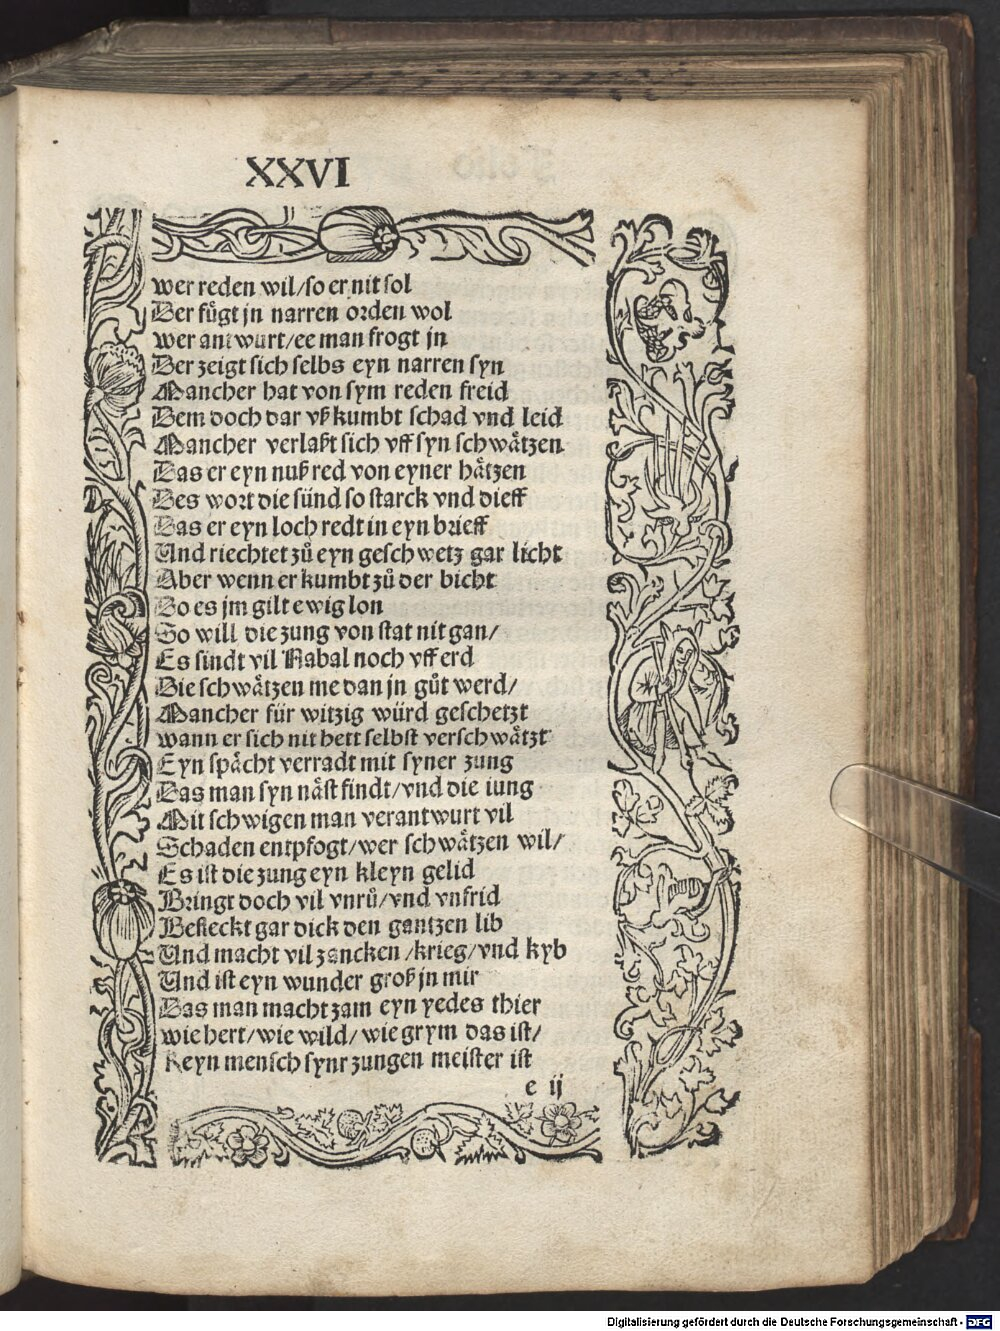 XXVI
wer reden wil/so er nit sol
Der fuͤgt jn narren orden wol
wer antwurt/ee man frogt jn
Der zeigt sich selbs eyn narren syn
Mancher hat von sym reden freid
Dem doch dar vß kumbt schad vnd leid
Mancher verlaßt sich vff syn schwaͤtzen
Das er eyn nuß red von eyner haͤtzen
Des wort die sünd so starck vnd dieff
Das er eyn loch redt in eyn brieff
Und riechtet zuͦ eyn geschwetz gar licht
Aber wenn er kumbt zuͦ der bicht
Do es jm gilt ewig lon
So will die zung von stat nit gan/
Es sindt vil Nabal noch vff erd
Die schwaͤtzen me dan jn guͦt werd/
Mancher für witzig würd geschetzt
wann er sich nit hett selbst verschwaͤtzt
Eyn spaͤcht verradt mit syner zung
Das man syn naͤst findt/vnd die iung
Mit schwigen man verantwurt vil
Schaden entpfogt/wer schwaͤtzen wil/
Es ist die zung eyn kleyn gelid
Bringt doch vil vnruͦ/vnd vnfrid
Befleckt gar dick den gantzen lib
Und macht vil zancken/krieg/vnd kyb
Und ist eyn wunder groß jn mir
Das man macht zam eyn yedes thier
wie hert/wie wild/wie grym das ist/
Keyn mensch synr zungen meister ist
e ij
Digitalisierung gefördert durch die Deutsche Forschungsgemeinschaft - DFG